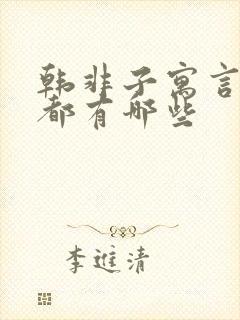 韩非子寓言
都有哪些
李进清